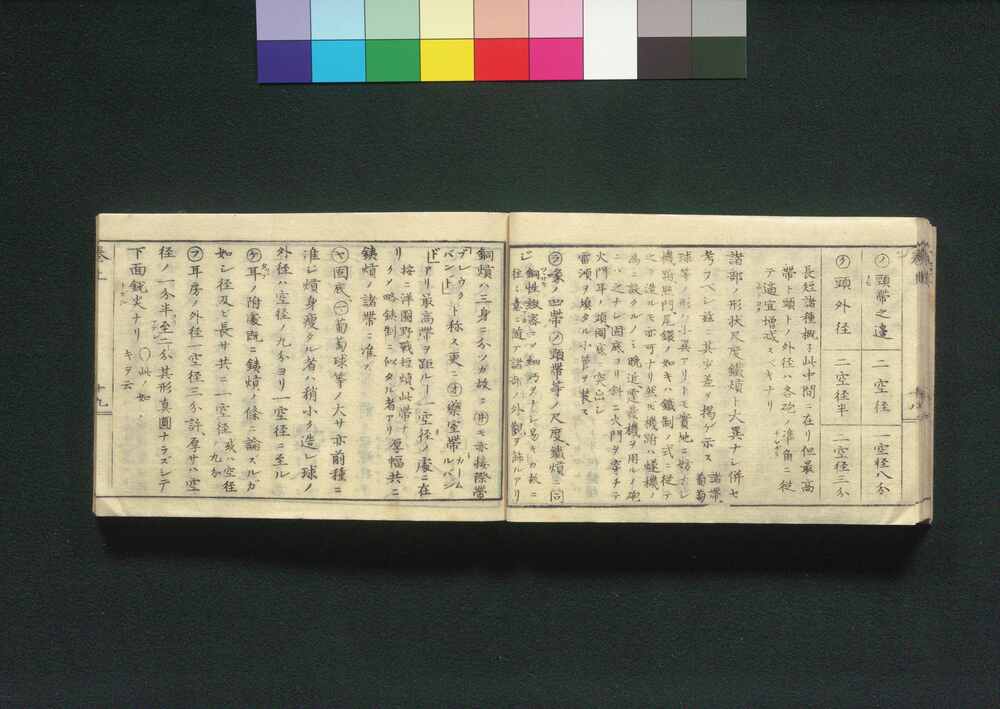 ㋨頭帶之邊 二空径 一空径八分
長短諸種概子此中間ニ在リ但最高
帶ト頭トノ外径ハ各砲ノ準角ニ從
テ適宜増減スベキナリ
頭外径 二空径半 二空径三分
諸部ノ形状尺度鐵熕ト大異ナシ併セ
考フベシ茲ニ其少差ヲ掲ゲ示ス 諸帶葡萄
球等ノ形ハ小異アリトモ實地ニ妨ナシ
機ノ如キハ鐵制ノ式ニ從テ
之ヲ造ルモ亦可ナリ然モ機跗ハ燧機ノ
為ニ設クルノミ晩近雷汞機ヲ用ルノ砲
ニハ之ナシ固底ヨリ斜ニ火門ヲ穿チテ
火門耳ノ頂ニ突出シ
雷汞ヲ填タル小管ヲ装ス
象ノ凹帶㋨頭帶等ノ尺度鐵熕ニ同
シ銅性緻密ニ
往々意ニ随テ諸部ノ外観ヲ飾ルアリ
銅熕ハ三身ニ分ツガ故ニ㋼モ亦接際帶
ブレウクト称ス更ニ㋔藥室帶カームル
バンド
アリ最高帶ヲ距ルヿ一空径ノ處ニ在
リ 按ニ洋國野戰短熕此帶ナ
ク略鉄制ニ似タル者アリ 厚幅共ニ
鉄熕ノ諸帶ニ准ズ
㋳固底㋮葡萄球等ノ大サ亦前種ニ
准シ熕身瘦タル者ハ稍小ク造レ球ノ
外径ハ空径ノ九分ヨリ一空径ニ至ル
㋘耳ノ附處既ニ鉄熕ノ條ニ論ズルガ
如シ径及ビ長サ共ニ一空径 或ハ空径ノ九分
㋫耳房ノ外径一空径三分許厚サハ空
径ノ一分半至二分其形真圓ナラズシテ
下面鈍尖ナリ 此ノ如キヲ云
卷上
十九